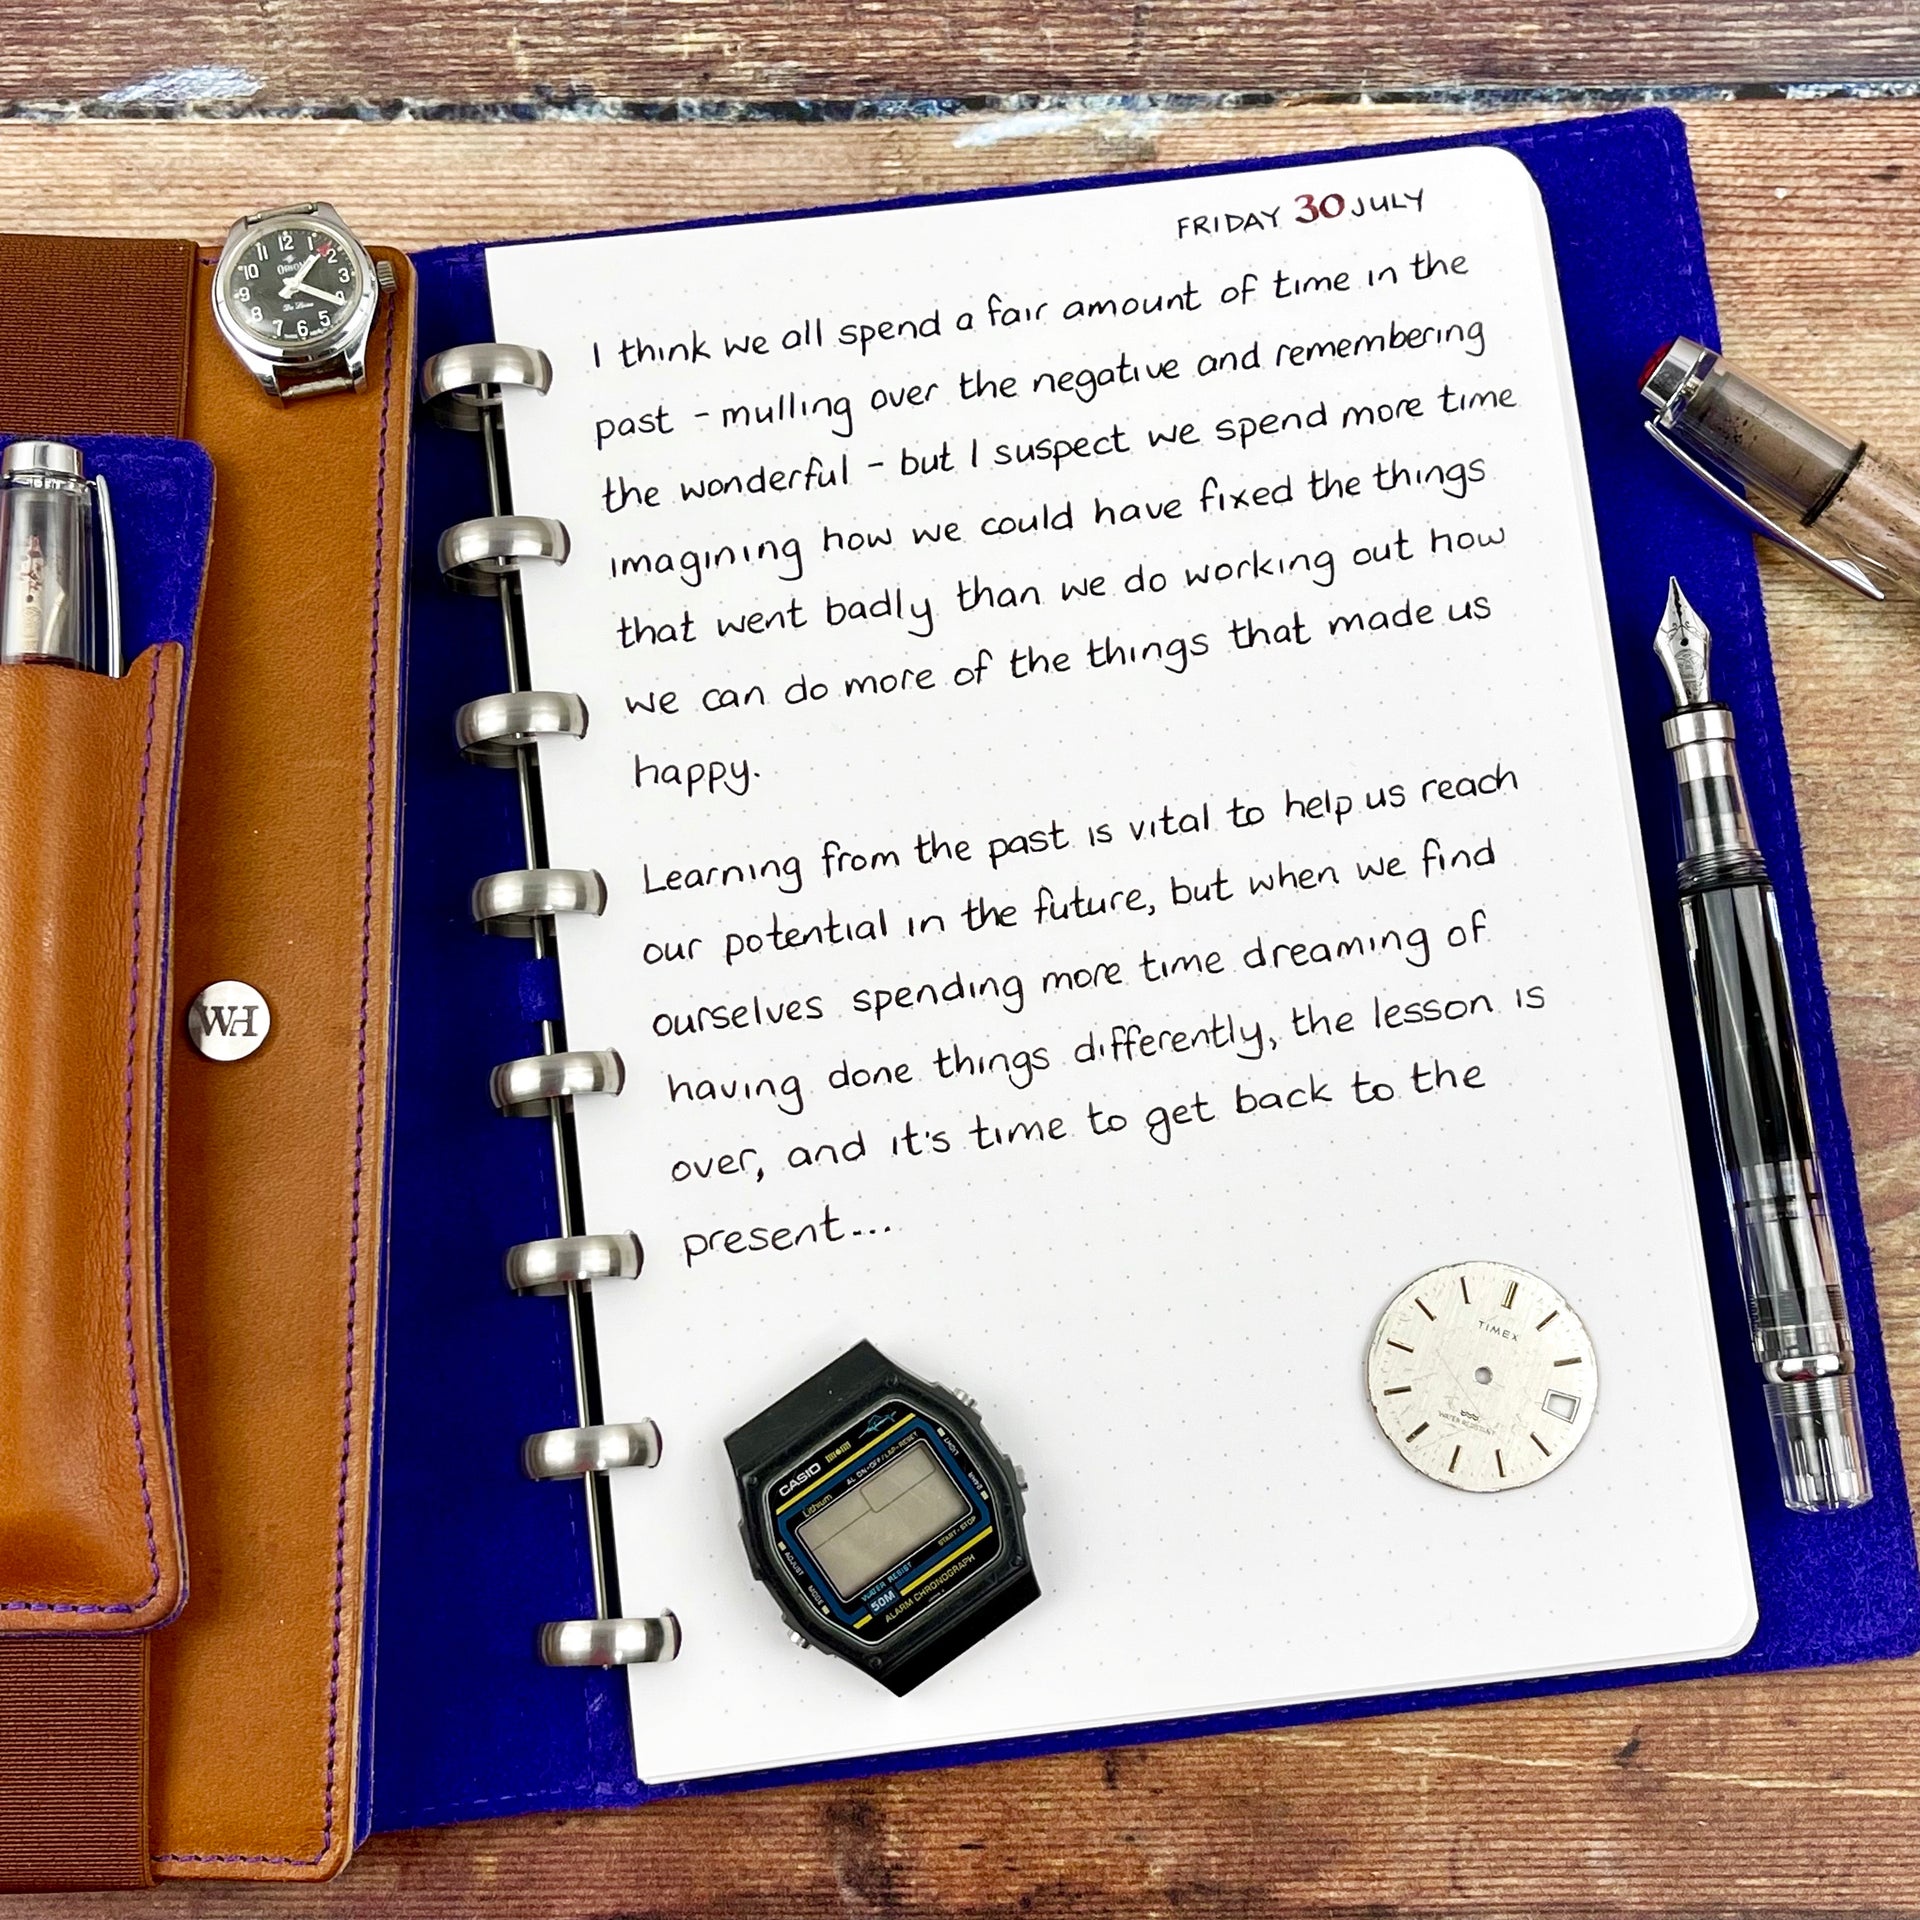 FRIDAY 30 JULY
I think we all spend a fair amount of time in the
past - mulling over the negative and remembering
the wonderful - but I suspect we spend more time
imagining how we could have fixed the things
that went badly than we do working out how
we can do more of the things that made us
happy.
Learning from the past is vital to help us reach
our potential in the future, but when we find
ourselves spending more time dreaming of
having done things differently, the lesson is
over, and it's time to get back to the
present...
12
1
2
3
5
6
7
8
9
10
11
WH
TIMEX
WATER RESISTANT
CASIO
AL ON•OFF/LAP•RESET
Lithium
LIGHT
24HR
ADJUST
MODE
START•STOP
WATER RESIST
50M
ALARM CHRONOGRAPH